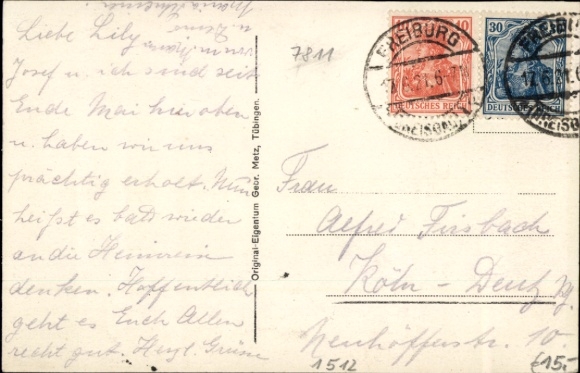 Liebe Lily
Josef u. ich sind seit
Ende Mai hier oben
u. haben wir uns
prächtig erholt. Nun
heißt es bald wieder
an die Heimreise
denken. Hoffentlich
geht es Euch Allen
recht gut. Herzl. Grüsse
Original-Eigentum Gebr. Metz, Tübingen.
7811
10
DEUTSCHES REICH
30
DEUTSCHES REICH
FREIBURG
(BREISGAU)
FREIBURG
(BREISGAU)
Frau
Alfred Firsbach
Köln - Deutz
Neuhöfferstr. 10.
1512
€15,-